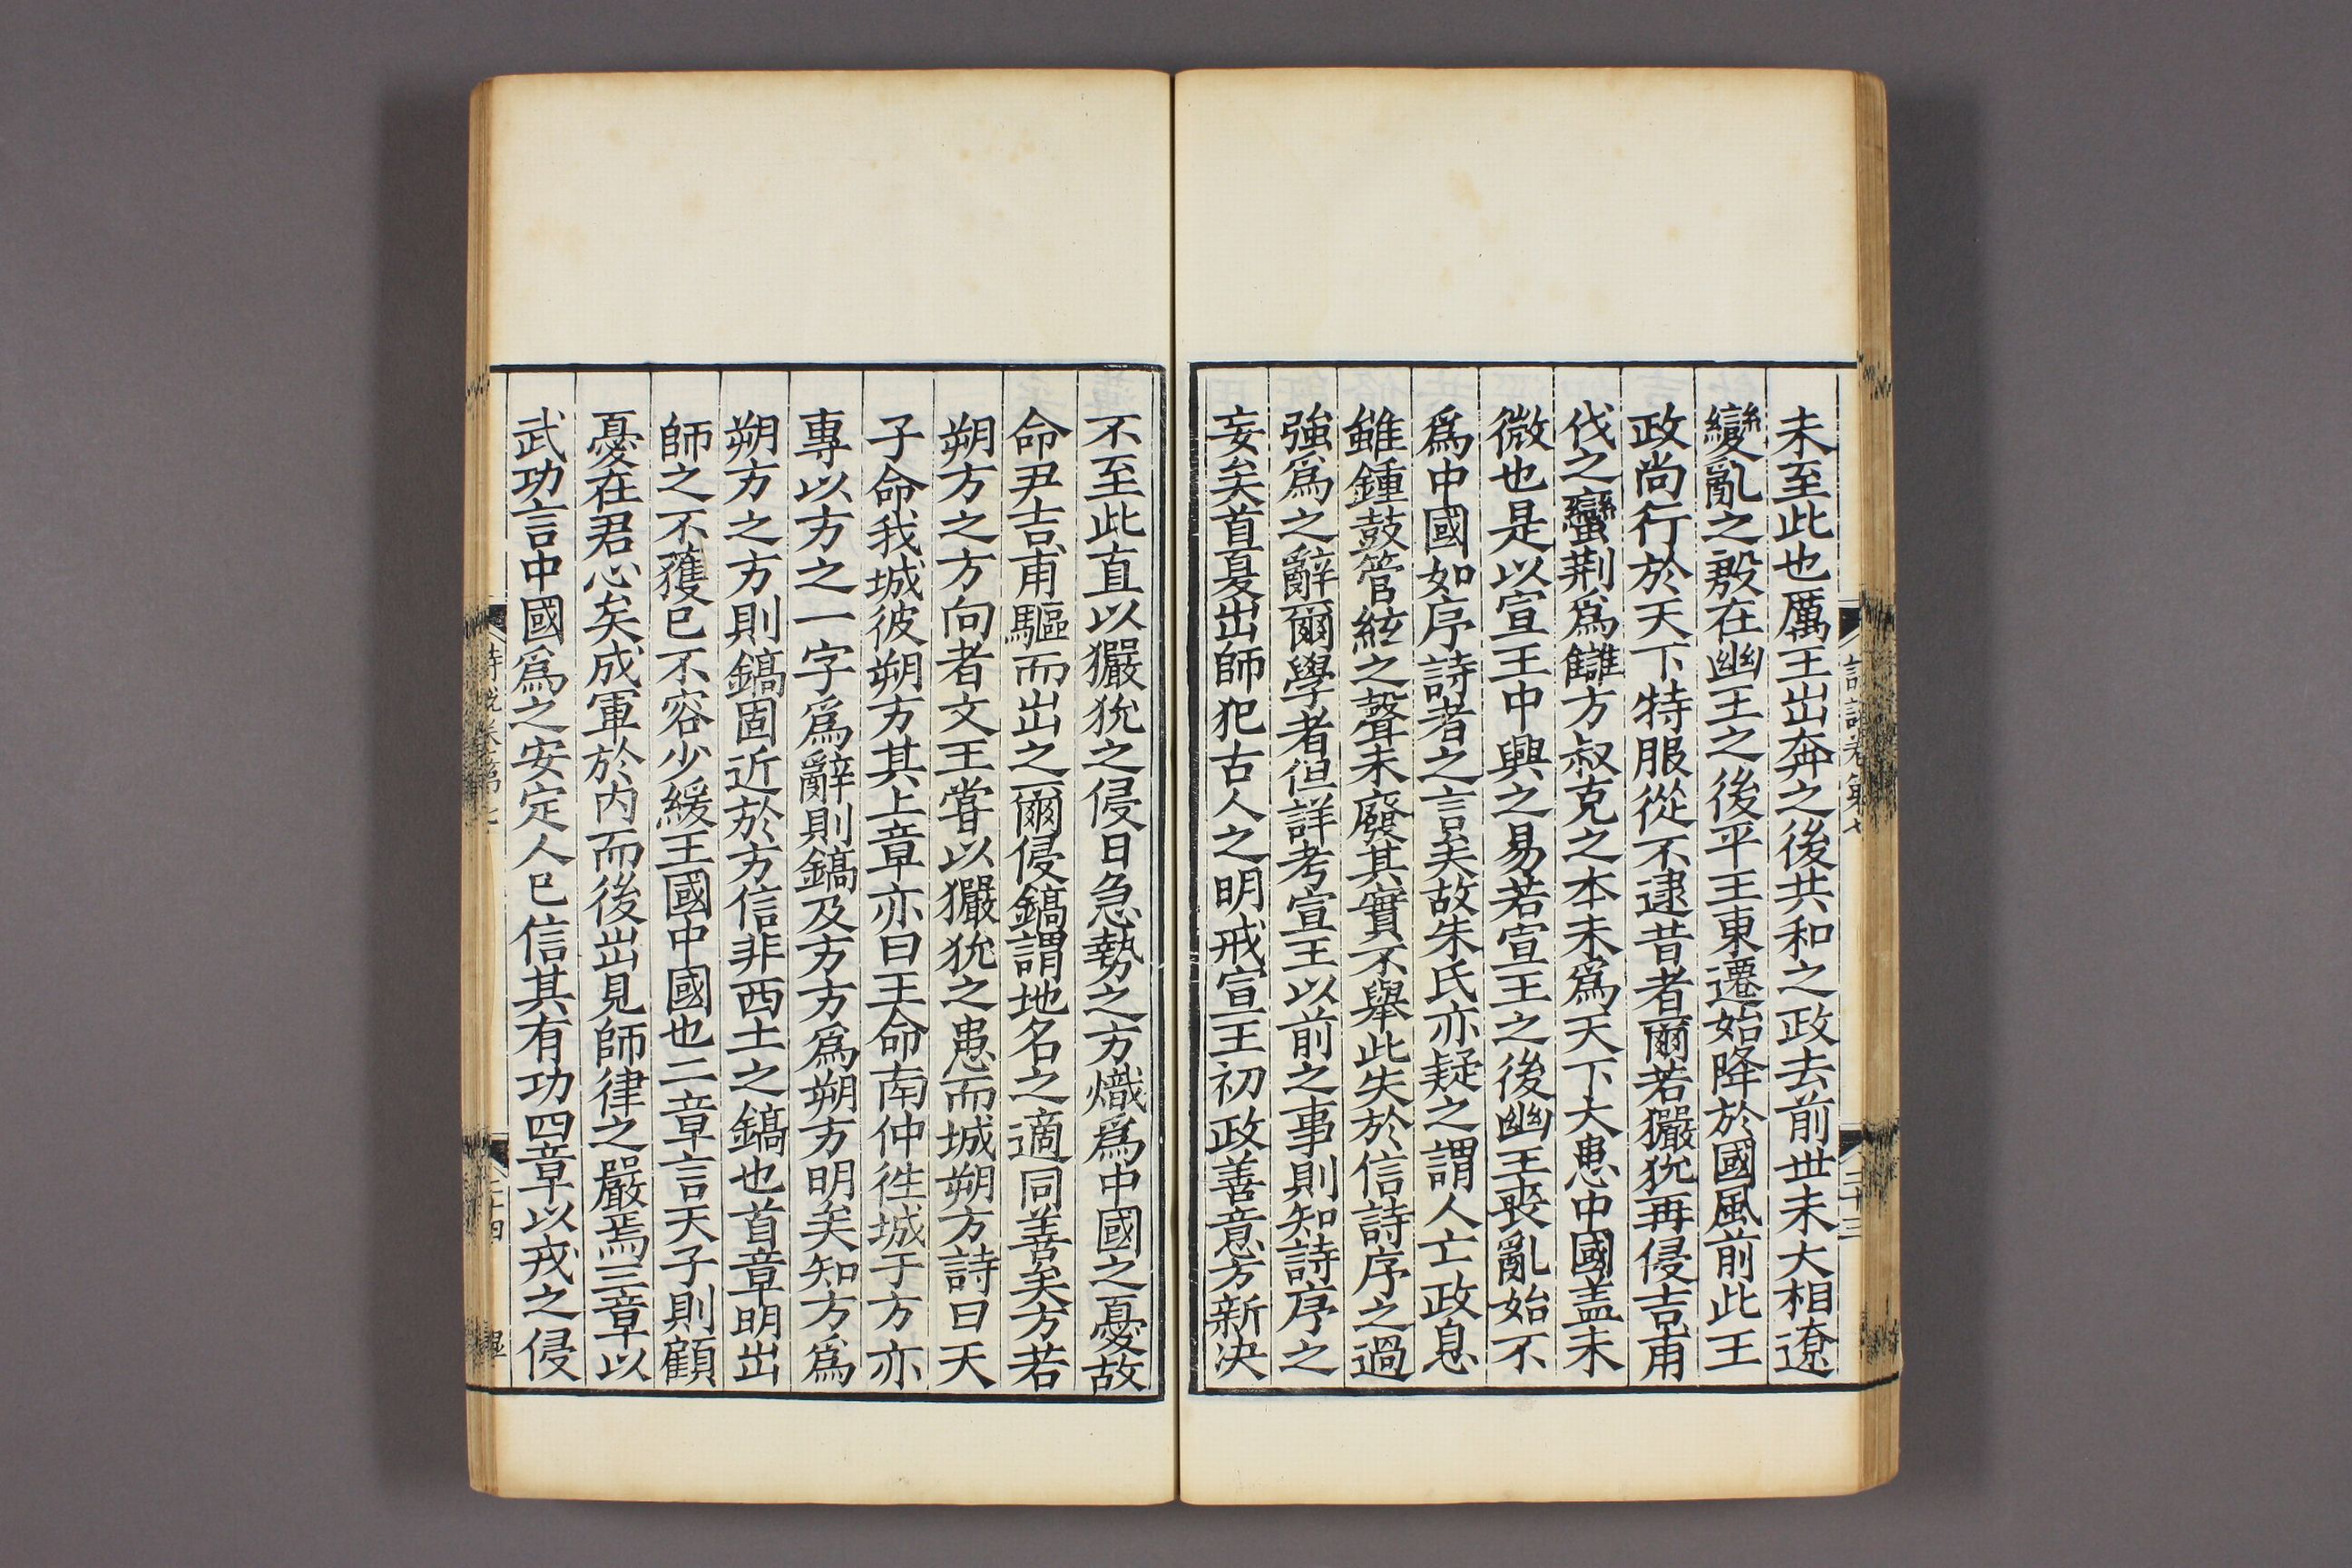 未至此也厲王出奔之後共和之政去前世未大相遼
變亂之殷在幽王之後平王東遷始降於國風前此王
政尚行於天下特服從不逮昔者爾若玁狁再侵吉甫
伐之蠻荆爲讎方叔克之本未爲天下大患中國盖未
微也是以宣王中興之易若宣王之後幽王喪亂始不
爲中國如序詩者之言矣故朱氏亦疑之謂人亡政息
雖鍾鼓管絃之聲未廢其實不舉此失於信詩序之過
強爲之辭爾學者但詳考宣王以前之事則知詩序之
妄矣首夏出師犯古人之明戒宣王初政善意方新决
不至此直以玁狁之侵日急勢之方熾爲中國之憂故
命尹吉甫驅而出之爾侵鎬謂地名之適同善矣方若
朔方之方向者文王嘗以玁狁之患而城朔方詩曰天
子命我城彼朔方其上章亦曰王命南仲徃城于方亦
專以方之一字爲辭則鎬及方方爲朔方明矣知方爲
朔方之方則鎬固近於方信非西土之鎬也首章明出
師之不獲已不容少緩王國中國也二章言天子則顧
憂在君心矣成軍於内而後出見師律之嚴焉三章以
武功言中國爲之安定人已信其有功四章以戎之侵
詩說卷第七
二十三
詩說卷第七
二十四